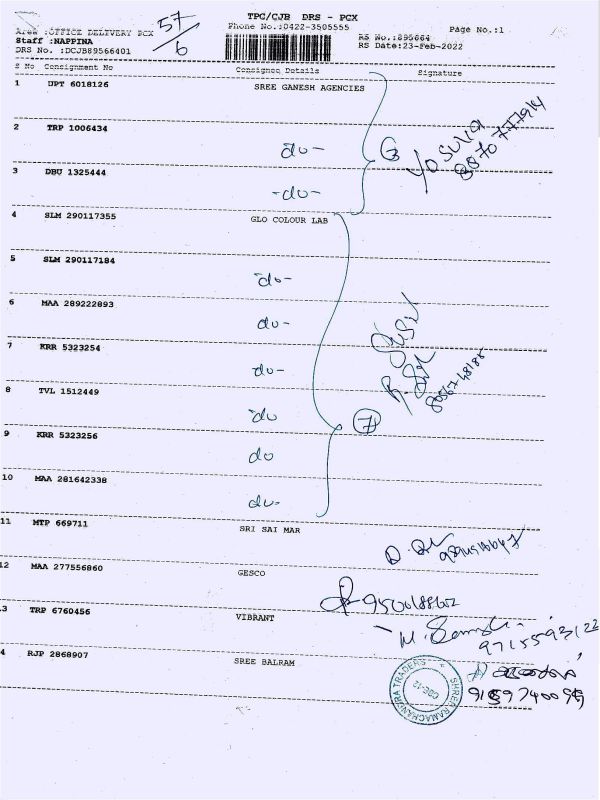 TPC/CJB DRS - PCX
Phone No.:0422-3505555
Page No.:1
Area :OFFICE DELIVERY PCX
57/6
Staff :NAPPINA
DRS No. :DCJB89566401
RS No.:895664
RS Date:23-Feb-2022
S No Consignment No Consignee Details Signature
1 UPT 6018126 SREE GANESH AGENCIES
2 TRP 1006434 do-
3 DBU 1325444 -do-
4 SLM 290117355 GLO COLOUR LAB
5 SLM 290117184 do-
6 MAA 289222893 do-
7 KRR 5323254 do-
8 TVL 1512449 do
7
9 KRR 5323256 do
10 MAA 281642338 do-
11 MTP 669711 SRI SAI MAR
12 MAA 277556860 GESCO
3 TRP 6760456 VIBRANT
9715593122
4 RJP 2868907 SREE BALRAM
SHREE RAMACHANDRA TRADERS
CBE-12